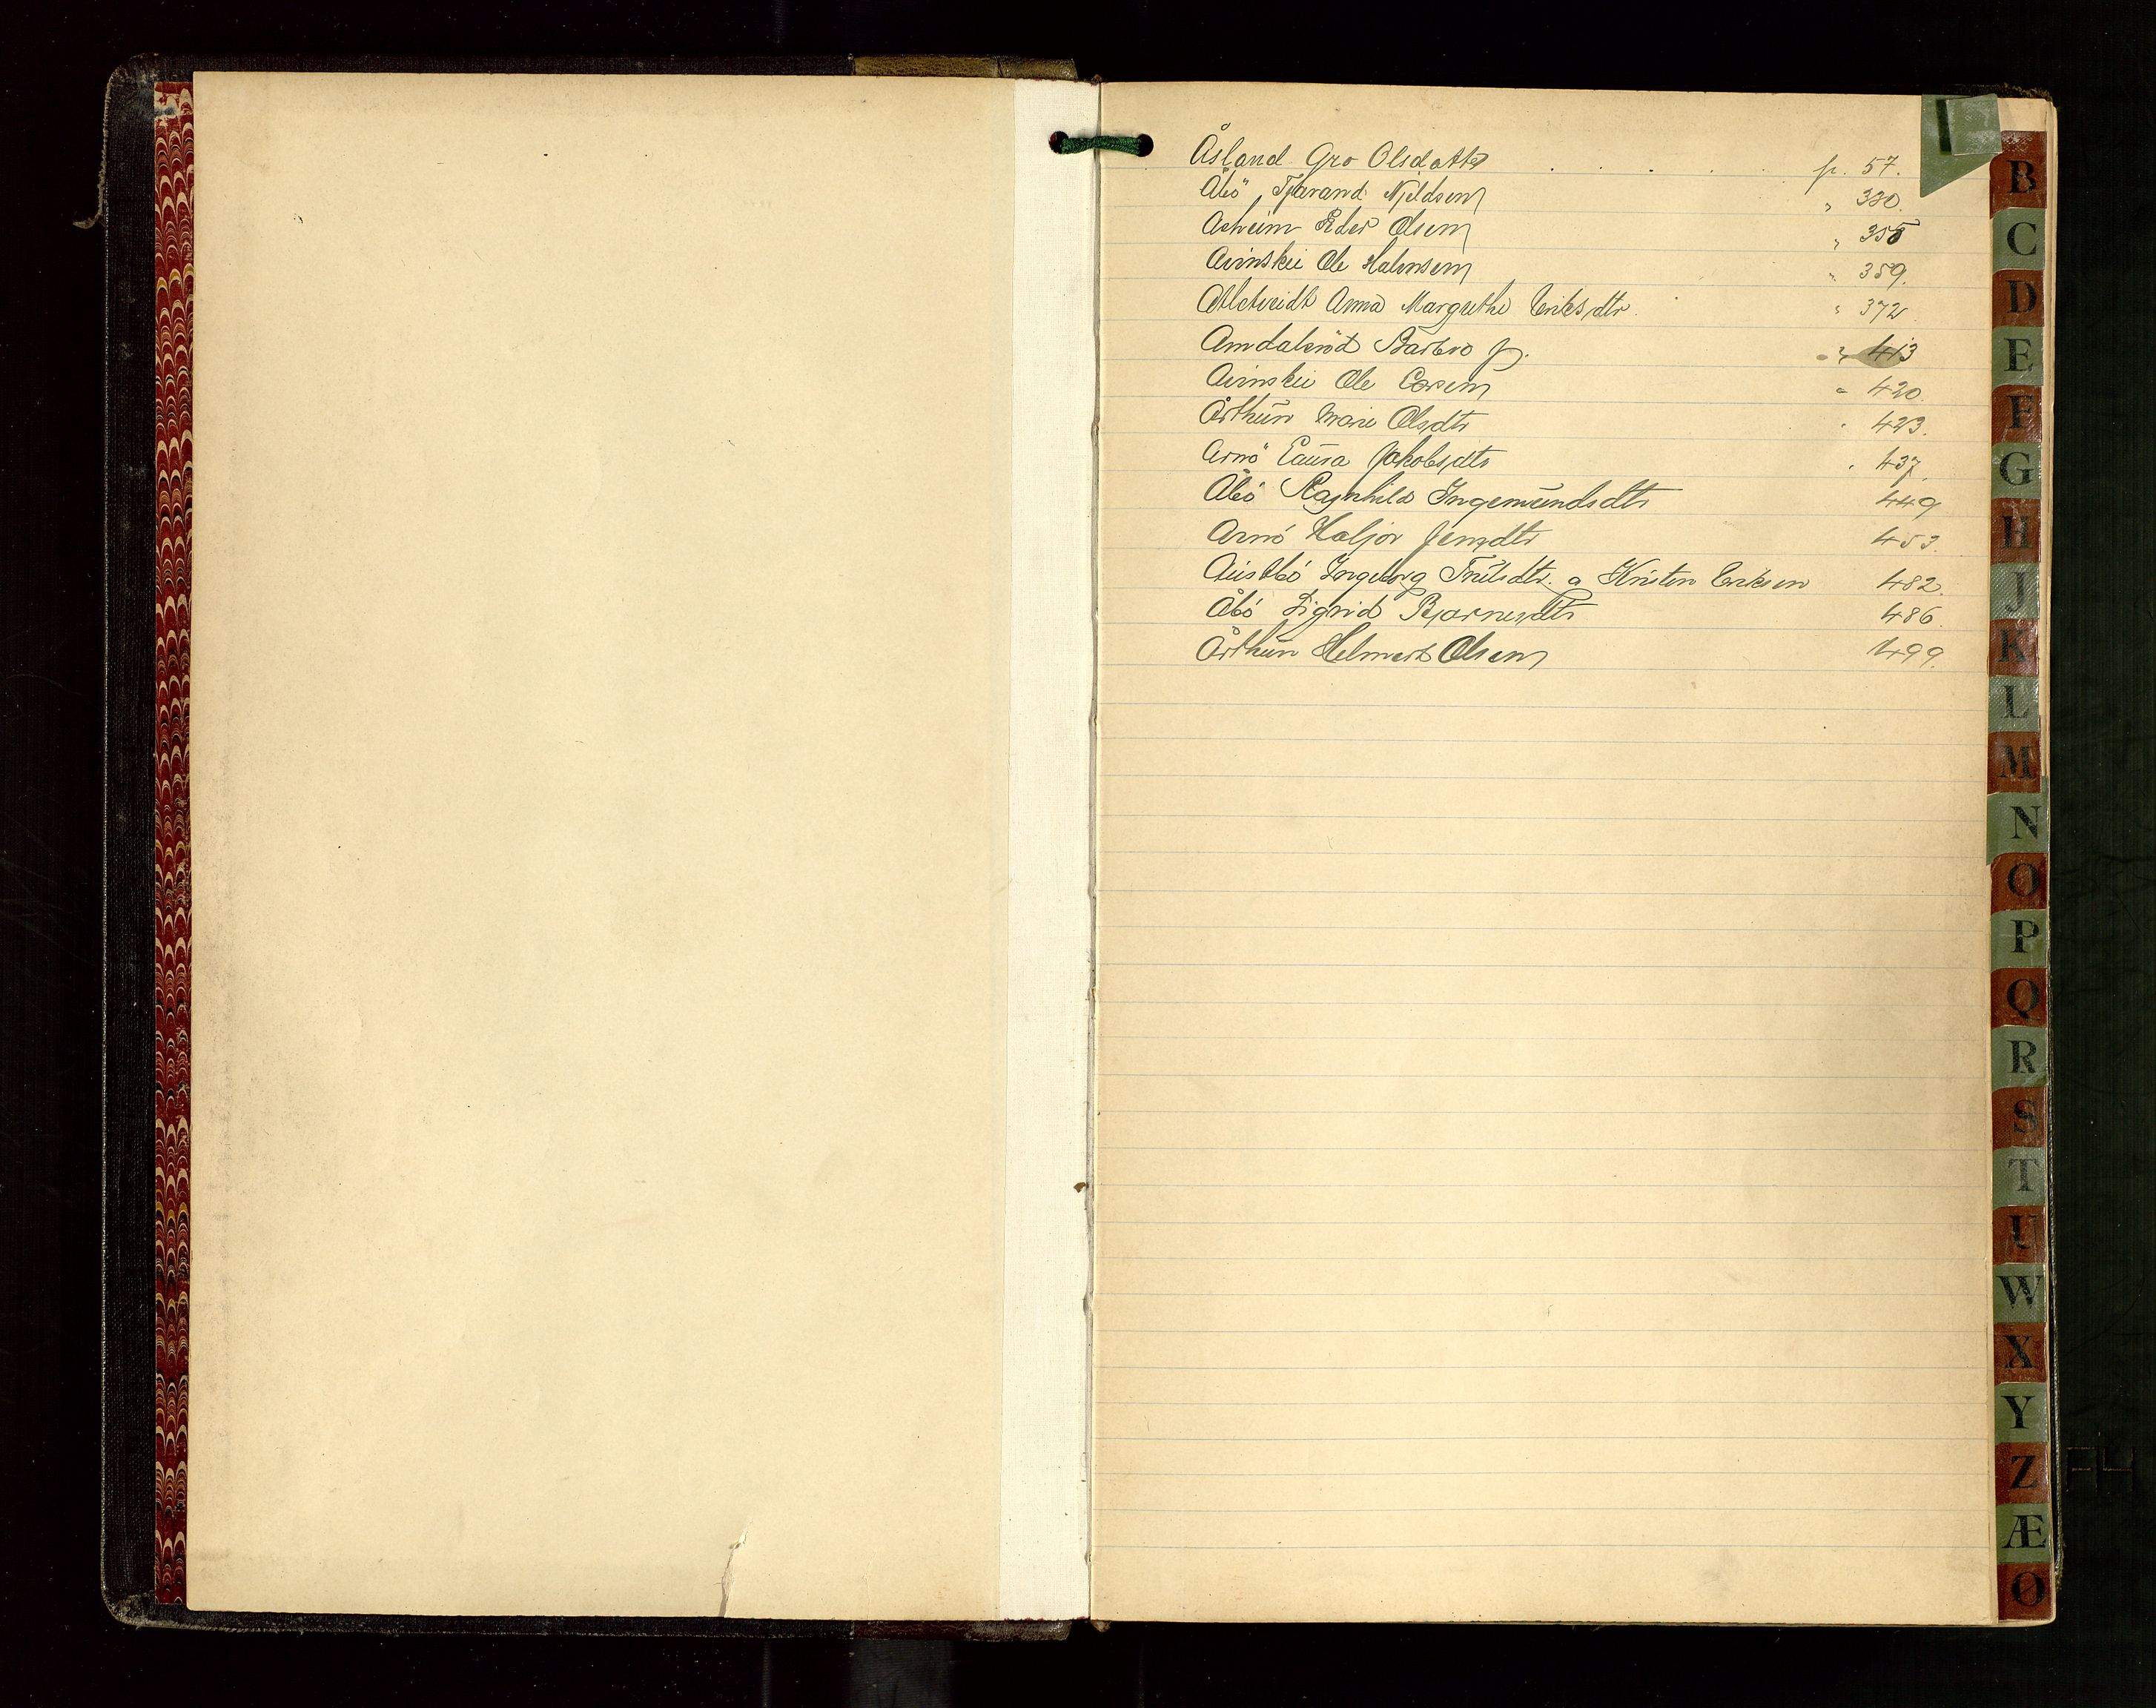 Åsland Gro Olsdatter . . . . . . p. 57.
Åbö Tjerand Njeldsen " 330.
Asheim Peder Olsen " 355
Auinskei Ole Halvorsen " 359.
Anna Margrethe Eriksdtr. " 372
Amdalsröd Barbro J. " 413
Auinskei Ole Larsen " 420.
Årthun Marie Olsdtr " 423.
Arnö Laura Jakobsdtr " 437.
Åbö Ragnhild Ingemundsdtr 449
Arnö Haljor Jensdtr 453.
Austbö Ingeborg Trulsdtr. o Kristen Eriksen 482.
Åbö Sigrid Bjarnesdtr 486.
Årthun Helmert Olsen 499.
B
C
D
E
F
G
H
J
K
L
M
N
O
P
Q
R
S
T
U
W
X
Y
Z
Æ
Ø